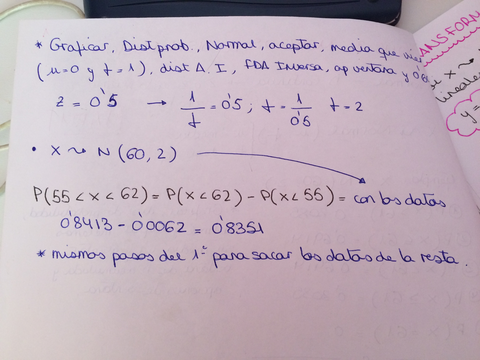 * Graficar, Dist prob., Normal, aceptar, media que vien
(μ=0 y t=1), dist A.I, FDA Inversa, ap ventana y 0'6
z = 0'5 → 1/t = 0'5; t = 1/0'5 t = 2
• X ~ N (60, 2)
P(55 < x < 62) = P(x < 62) - P(x < 55) = con los datos
0'8413 - 0'0062 = 0'8351
* mismos pasos del 1º para sacar los datos de la resta.
TRANSFORM
x ~
lineales
y =